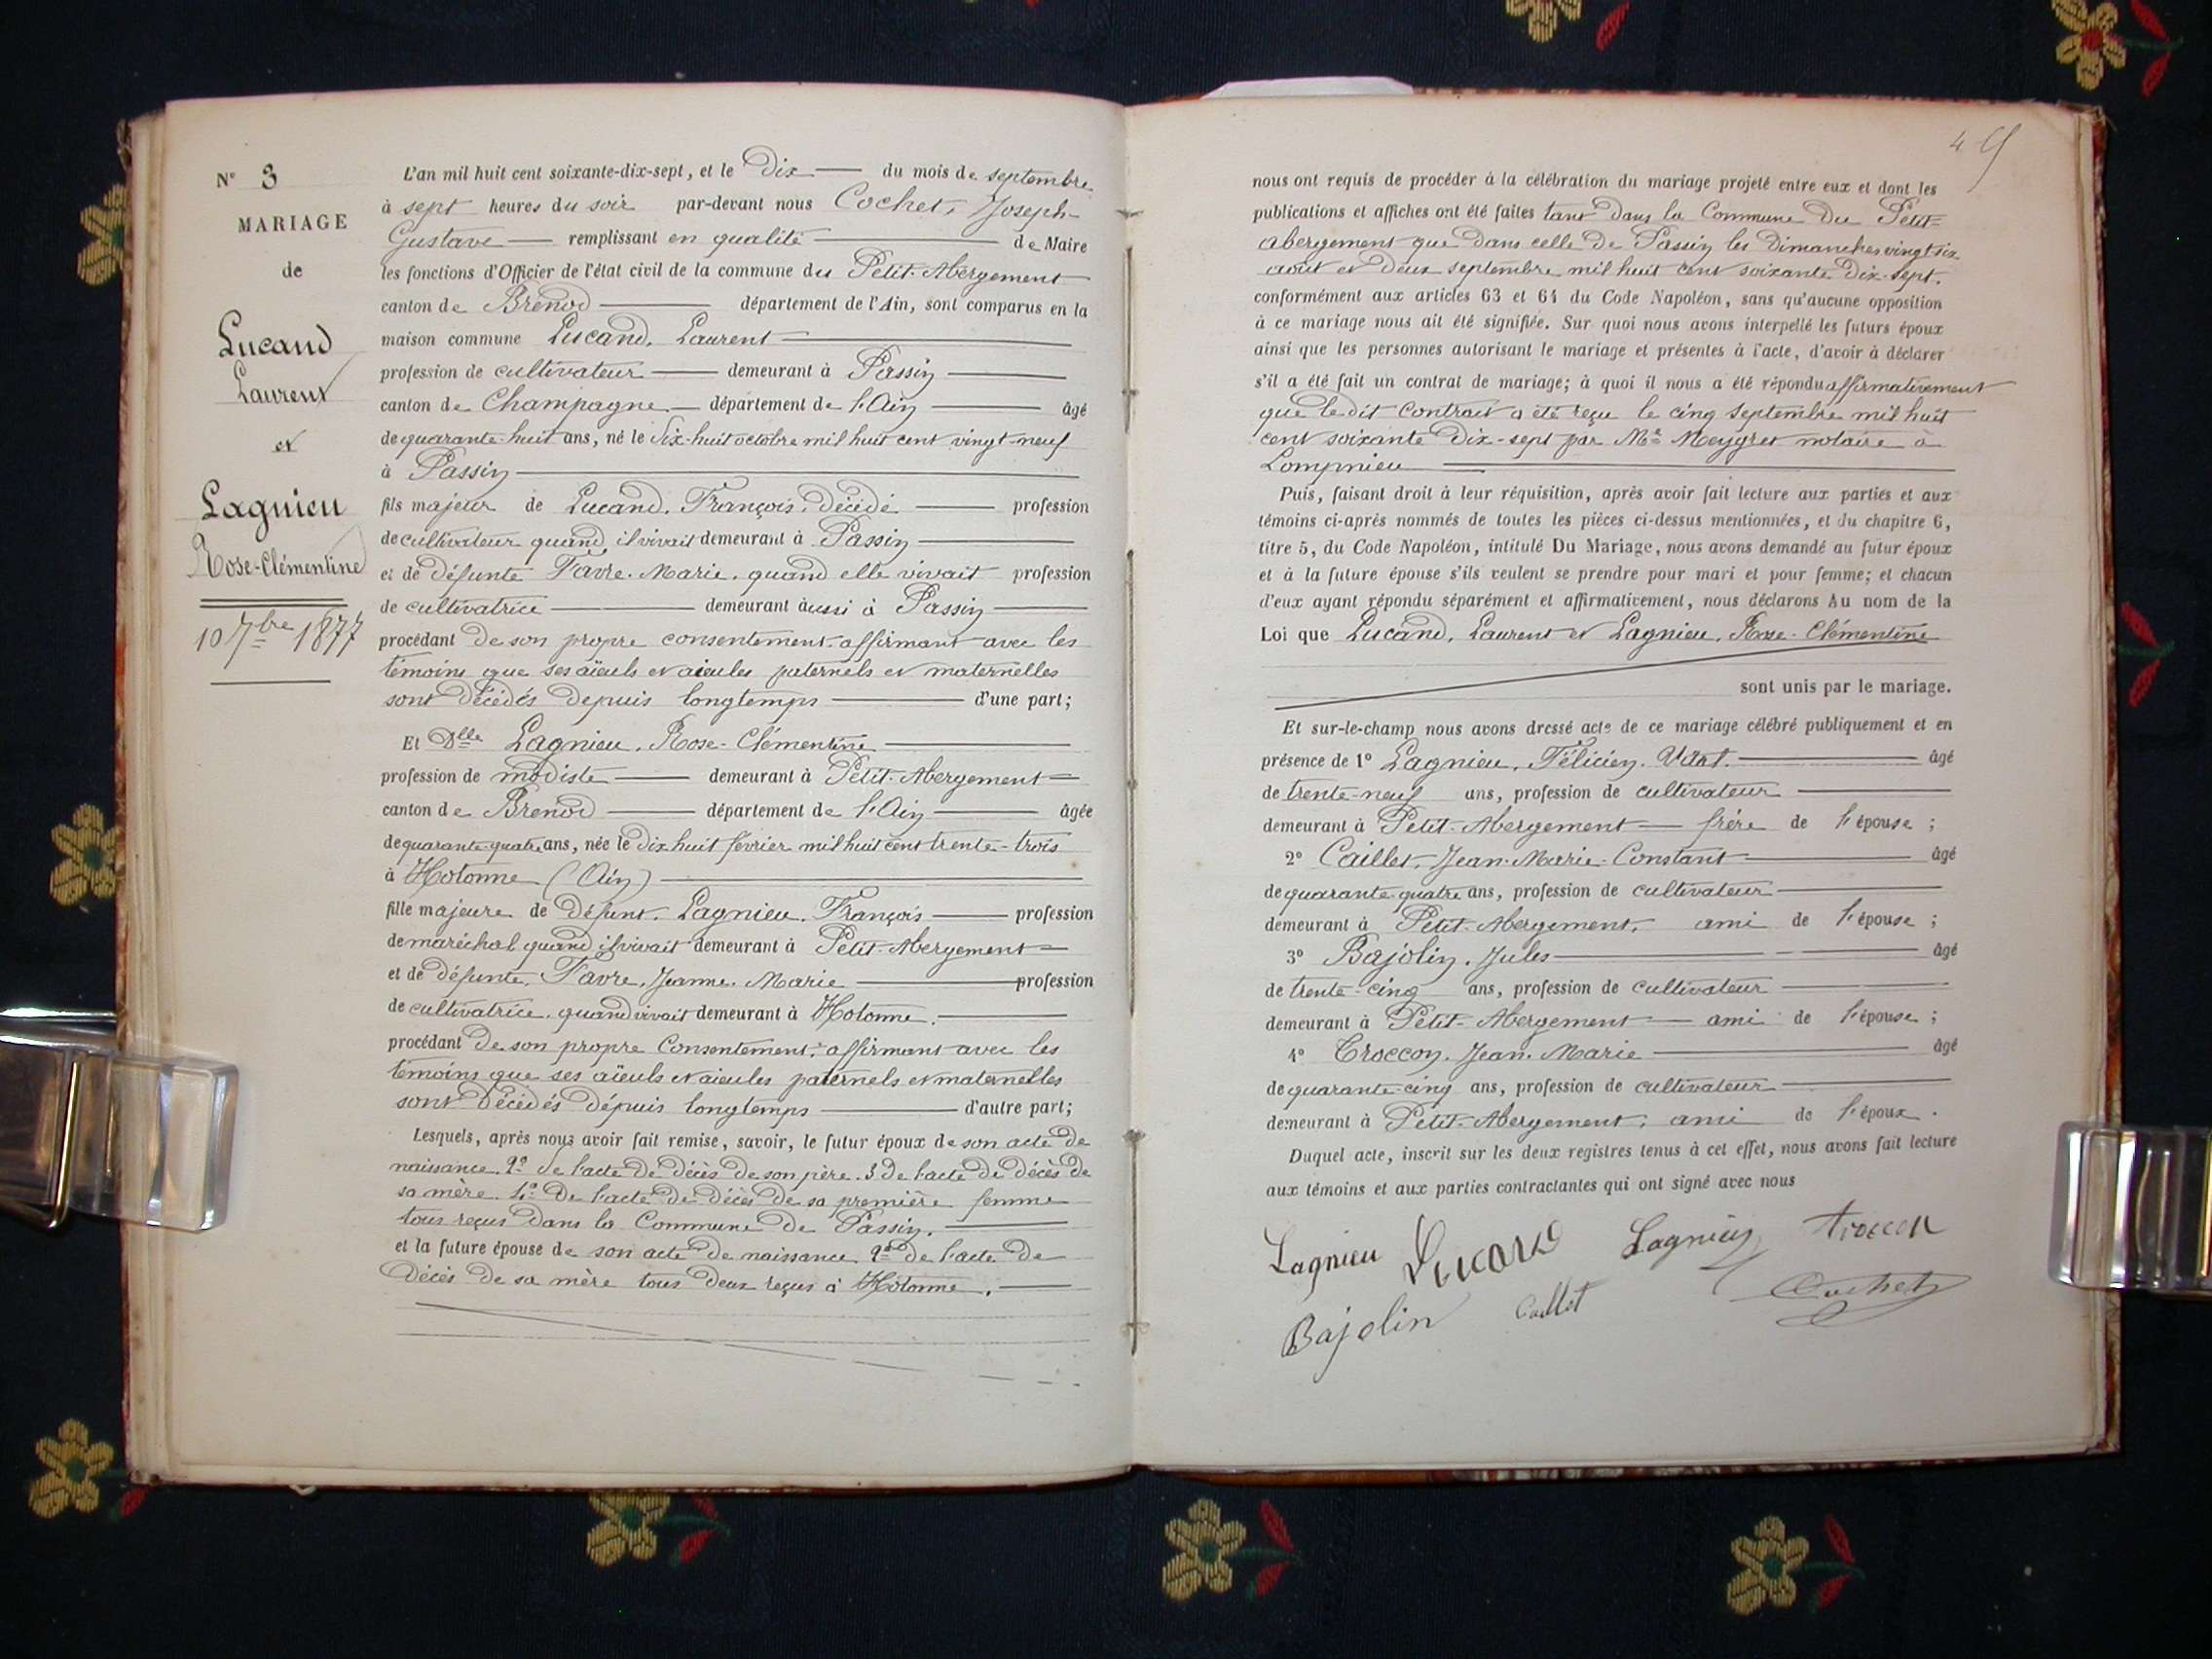 N° 3
MARIAGE
de
Lucand
Laurent
et
Lagnieu
Rose-Clémentine
10 7bre 1877
L'an mil huit cent soixante-dix-sept, et le Dix du mois de septembre
à sept heures du soir par-devant nous Cochet, Joseph-
Gustave remplissant en qualité de Maire
les fonctions d'Officier de l'état civil de la commune du Petit-Abergement
canton de Brenod département de l'Ain, sont comparus en la
maison commune Lucand, Laurent
profession de cultivateur demeurant à Passin
canton de Champagne département de l'Ain âgé
de quarante-huit ans, né le Dix-huit octobre mil huit cent vingt-neuf
à Passin
fils majeur de Lucand, François, décédé profession
de cultivateur quand il vivait demeurant à Passin
et de défunte Favre, Marie, quand elle vivait profession
de cultivatrice demeurant aussi à Passin
procédant de son propre consentement affirmant avec les
témoins que ses aïeuls et aieules paternels et maternelles
sont décédés depuis longtemps d'une part;
Et Dlle Lagnieu, Rose-Clémentine
profession de modiste demeurant à Petit-Abergement
canton de Brenod département de l'Ain âgée
de quarante-quatre ans, née le dix huit février mil huit cent trente-trois
à Hotonne (Ain)
fille majeure de défunt Lagnieu, François profession
de maréchal quand il vivait demeurant à Petit-Abergement
et de défunte Favre, Jeanne-Marie profession
de cultivatrice quand vivait demeurant à Hotonne.
procédant de son propre Consentement, affirmant avec les
témoins que ses aïeuls et aieules paternels et maternelles
sont décédés dépuis longtemps d'autre part;
Lesquels, après nous avoir fait remise, savoir, le futur époux de son acte de
naissance. 2° de l'acte de décès de son père. 3 de l'acte de décès de
sa mère. 4° De l'acte de décès de sa première femme
tous reçus dans la Commune de Passin.
et la future épouse de son acte de naissance 2° de l'acte de
Décès de sa mère tous deux reçus à Hotonne.
49
nous ont requis de procéder à la célébration du mariage projeté entre eux et dont les
publications et affiches ont été faites tant dans la Commune du Petit-
abergement que dans celle de Passin les Dimanches vingt six
août et deux septembre mil huit cent soixante dix-sept.
conformément aux articles 63 et 64 du Code Napoléon, sans qu'aucune opposition
à ce mariage nous ait été signifiée. Sur quoi nous avons interpellé les futurs époux
ainsi que les personnes autorisant le mariage et présentes à l'acte, d'avoir à déclarer
s'il a été fait un contrat de mariage; à quoi il nous a été répondu affirmativement
que le dit Contrat a été reçu le cinq septembre mil huit
cent soixante Dix-sept par Me Meygret notaire à
Lompnieu
Puis, faisant droit à leur réquisition, après avoir fait lecture aux parties et aux
témoins ci-après nommés de toutes les pièces ci-dessus mentionnées, et du chapitre 6,
titre 5, du Code Napoléon, intitulé Du Mariage, nous avons demandé au futur époux
et à la future épouse s'ils veulent se prendre pour mari et pour femme; et chacun
d'eux ayant répondu séparément et affirmativement, nous déclarons Au nom de la
Loi que Lucand, Laurent et Lagnieu, Rose-Clémentine
sont unis par le mariage.
Et sur-le-champ nous avons dressé acte de ce mariage célébré publiquement et en
présence de 1° Lagnieu, Félicien âgé
de trente-neuf ans, profession de cultivateur
demeurant à Petit-Abergement frère de l'épouse;
2° Caillet, Jean-Marie-Constant âgé
de quarante-quatre ans, profession de cultivateur
demeurant à Petit-Abergement, ami de l'épouse;
3° Bajolin, Jules âgé
de trente-cinq ans, profession de cultivateur
demeurant à Petit-Abergement ami de l'épouse;
4° Troccon, Jean-Marie âgé
de quarante-cinq ans, profession de cultivateur
demeurant à Petit-Abergement, ami de l'époux.
Duquel acte, inscrit sur les deux registres tenus à cet effet, nous avons fait lecture
aux témoins et aux parties contractantes qui ont signé avec nous
Lagnieu Lucand Lagnieu troccon
Bajolin Caillet Cochet